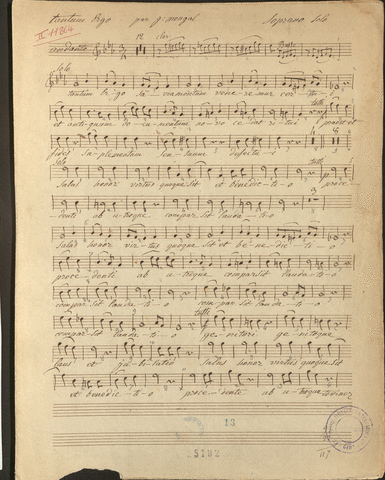 tantum Ergo par j: mengal Soprano Solo
II 11864
12 clar
andante
Solo
tantum Ergo sa cramentum vene re mur cer
tutti
et antiquum documentum novo cedat ritui praest et
fides suplementum sensuum defectu i
Solo tutti
salus honor virtus quoque sit et benedic ti o proce
denti ab utroque compar sit lauda ti o
salus honor virtus quoque sit et bene dic ti o
procedenti ab utroque compar sit lauda ti o
compar sit lauda ti o compar sit lauda ti o
tutti
compar sit lauda ti o genitori genitoque
laus et jubilatio salus honor virtus quoque sit
et benedic ti o procedenti ab utroque
13
5192
117